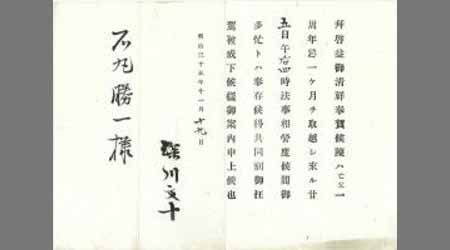 拝啓益御清祥奉賀候陳ハ亡父一
周年忌一ケ月ヲ取越シ来ル廿
五日午后四時法事相営度候間御
多忙トハ奉存候得共同刻御枉
駕被成下候様御案内申上候也
明治三十五年十一月十九日
深川文十
石丸勝一様